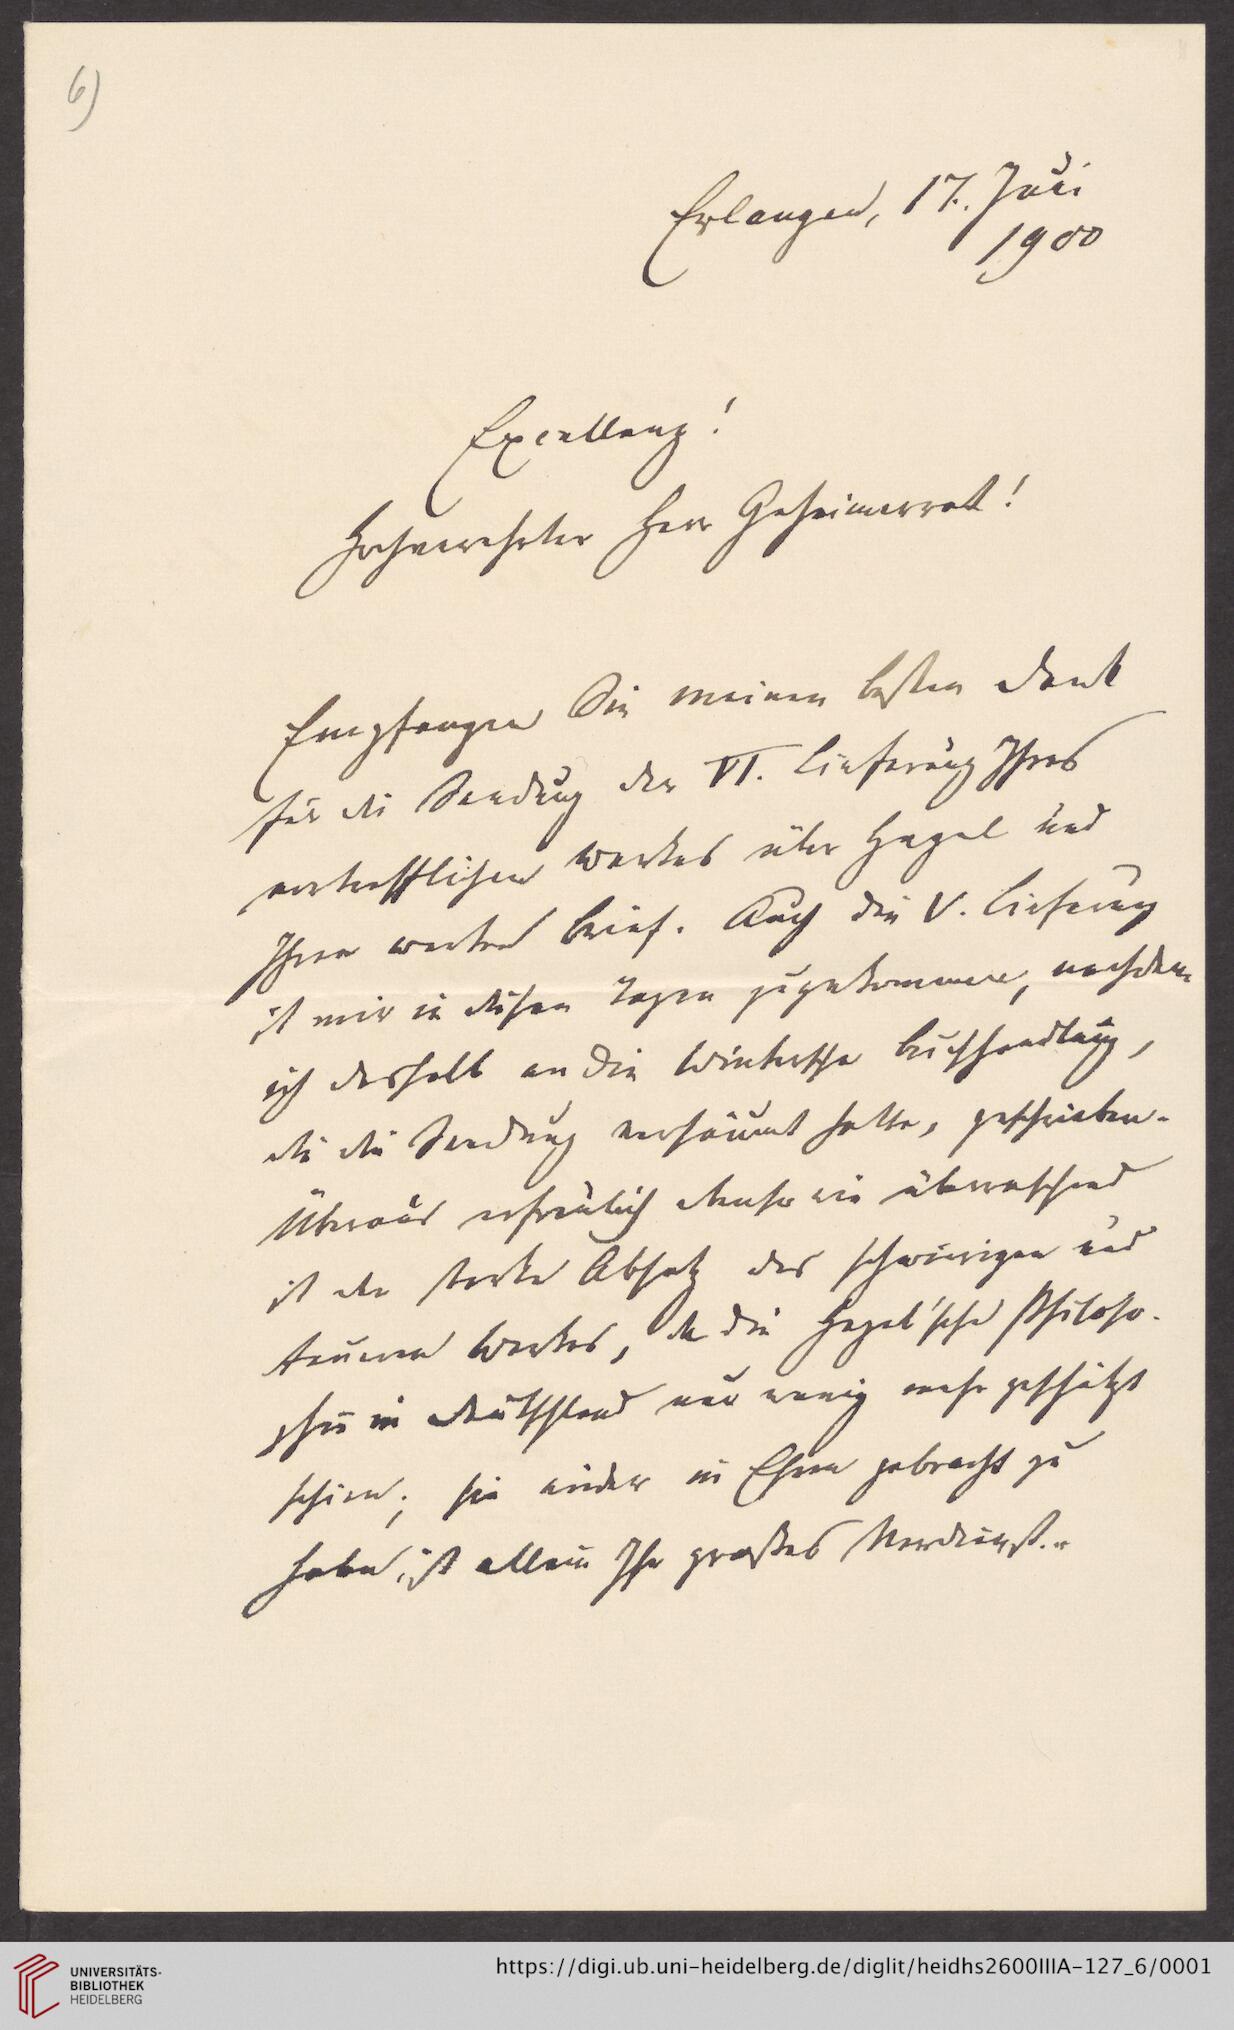 6)
Erlangen, 17. Juni
1900
Excellenz!
Hochverehrter Herr Geheimerrat!
Empfangen Sie meinen besten Dank
für die Sendung der VI. Lieferung Ihres
vortrefflichen Werkes über Hegel und
Ihren werten Brief. Auch die V. Lieferung
ist mir in diesen Tagen zugekommen, nachdem
ich deshalb an die Wintersche Buchhandlung,
die die Sendung versäumt hatte, geschrieben.
Überaus erfreulich ebenso wie überraschend
ist der starke Absatz des schwierigen und
teueren Werkes, da die Hegel'sche Philoso-
phie in Deutschland nur wenig mehr geschätzt
schien; sie wieder in Ehren gebracht zu
haben, ist allein Ihr großes Verdienst.
UNIVERSITÄTS-
BIBLIOTHEK
HEIDELBERG
https://digi.ub.uni-heidelberg.de/diglit/heidhs2600IIIA-127_6/0001